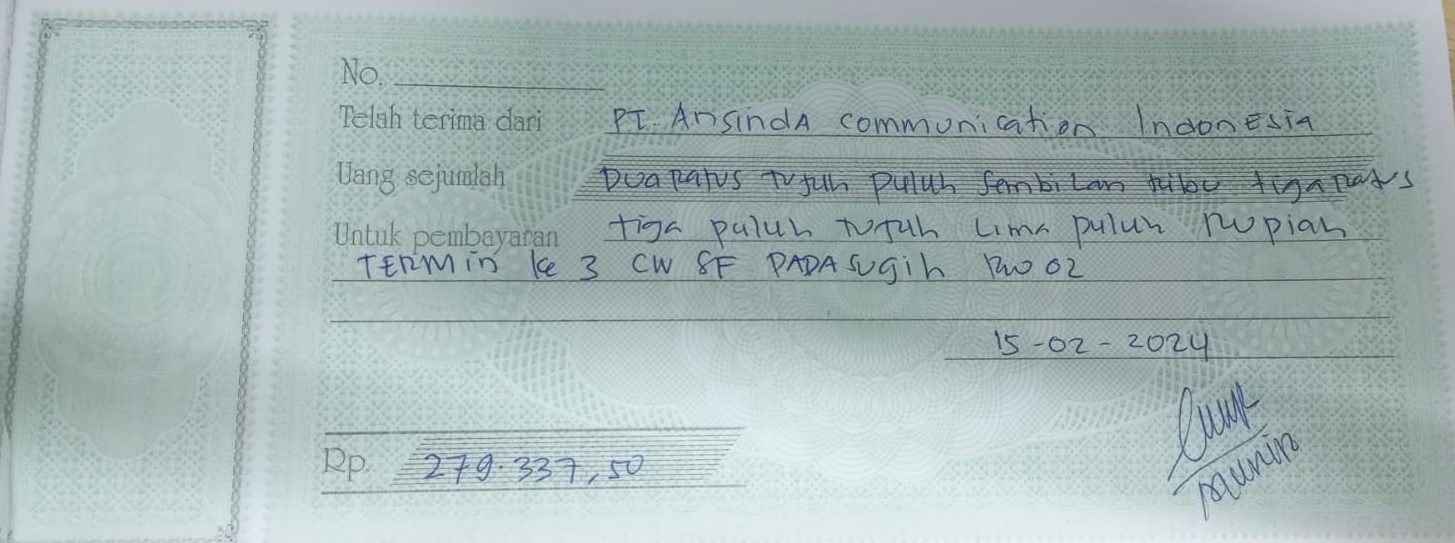 No.
Telah terima dari PT. Ansinda communication Indonesia
Uang sejumlah Dua ratus tujuh puluh sembilan ribu tiga ratus
tiga puluh tujuh lima puluh rupiah
Untuk pembayaran
TERMin ke 3 CW SF PADASugih RW 02
15-02-2024
Rp. 279.337,50
munir